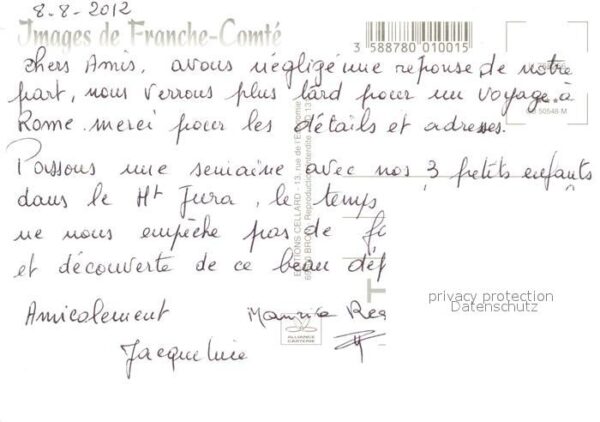 8-8-2012
Images de Franche-Comté
3 588780 010015
chers Amis, avons négligé une reponse de notre
part, nous verrons plus tard pour un voyage à
Rome. merci pour les détails et adresses.
Passons une semaine avec nos 3 petits enfants
dans le Ht Jura, le temps
ne nous empêche pas de
et découverte de ce beau dép
Amicalement Maurice
Jacqueline
EDITIONS CELLARD - 13, rue de l'Economie
BRON Reproduction interdite
50548 M
ALLIANCE
CARTERIE
privacy protection
Datenschutz